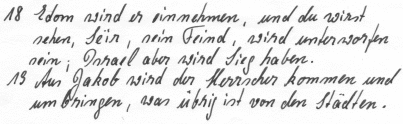 18 Edom wird er einnehmen, und du wirst
sehen, Sëir, sein Feind, wird unterworfen
sein; Israel aber wird Sieg haben.
19 Aus Jakob wird der Herrscher kommen und
umbringen, was übrig ist von den Städten.